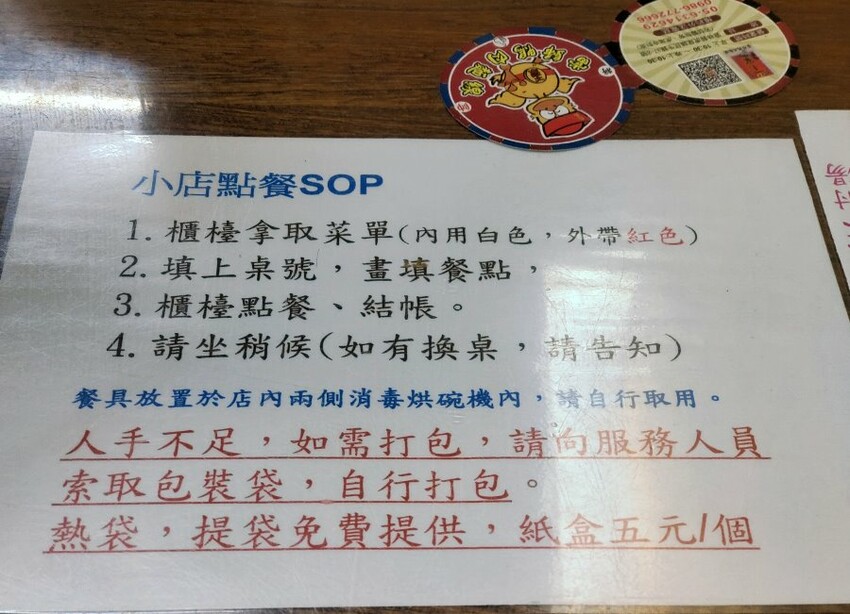 05-6314629
0986-77266
小店點餐SOP
1. 櫃檯拿取菜單(內用白色，外帶紅色)
2. 填上桌號，畫填餐點，
3. 櫃檯點餐、結帳。
4. 請坐稍候(如有換桌，請告知)
餐具放置於店內兩側消毒烘碗機內，請自行取用。
人手不足，如需打包，請向服務人員
索取包裝袋，自行打包。
熱袋，提袋免費提供，紙盒五元/個